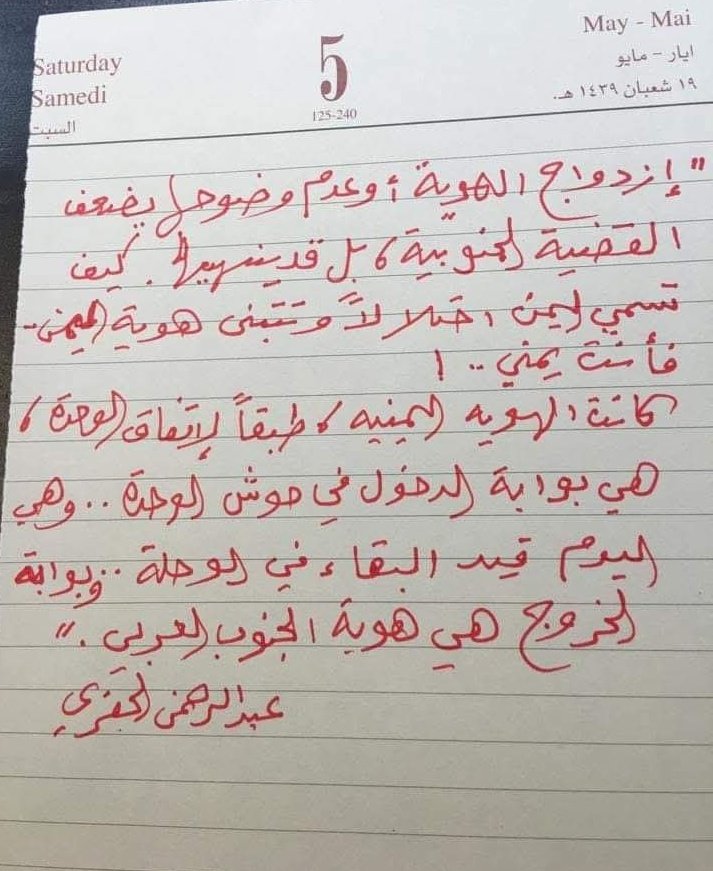 Saturday
Samedi
السبت
5
125-240
May - Mai
ايار - مايو
١٩ شعبان ١٤٣٩ هـ.
"إزدواج الهوية أو عدم وضوحها يضعف
القضية الجنوبية، بل قد ينهيها. كيف
تسمي اليمن احتلالاً وتتبنى هوية اليمن-
فأنت يمني .. !
كانت الهويه اليمنيه، طبقاً لإتفاق الوحدة،
هي بوابة الدخول في حوش الوحدة .. وهي
اليوم قيد البقاء في الوحلة .. وبوابة
الخروج هي هوية الجنوب العربي ."
عبدالرحمن الجفري